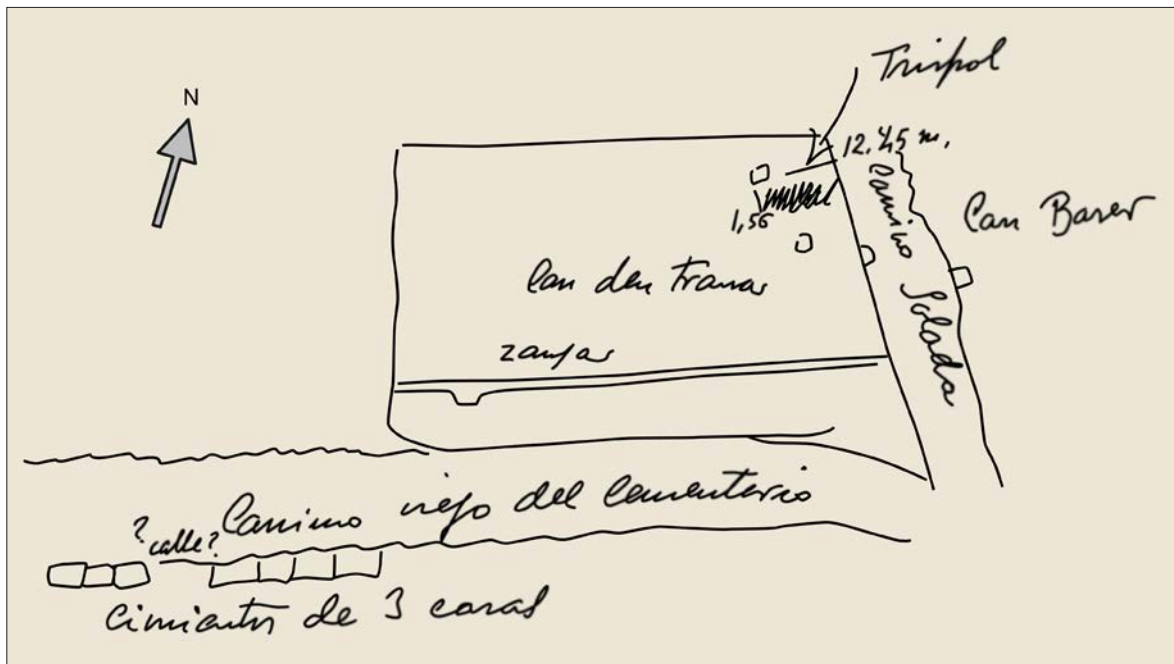 N
Trispol
12.45 m.
1,56
Camino Solada
Can Baser
Can den França
zanjas
Camino viejo del cementerio
?calle?
Cimientos de 3 casas